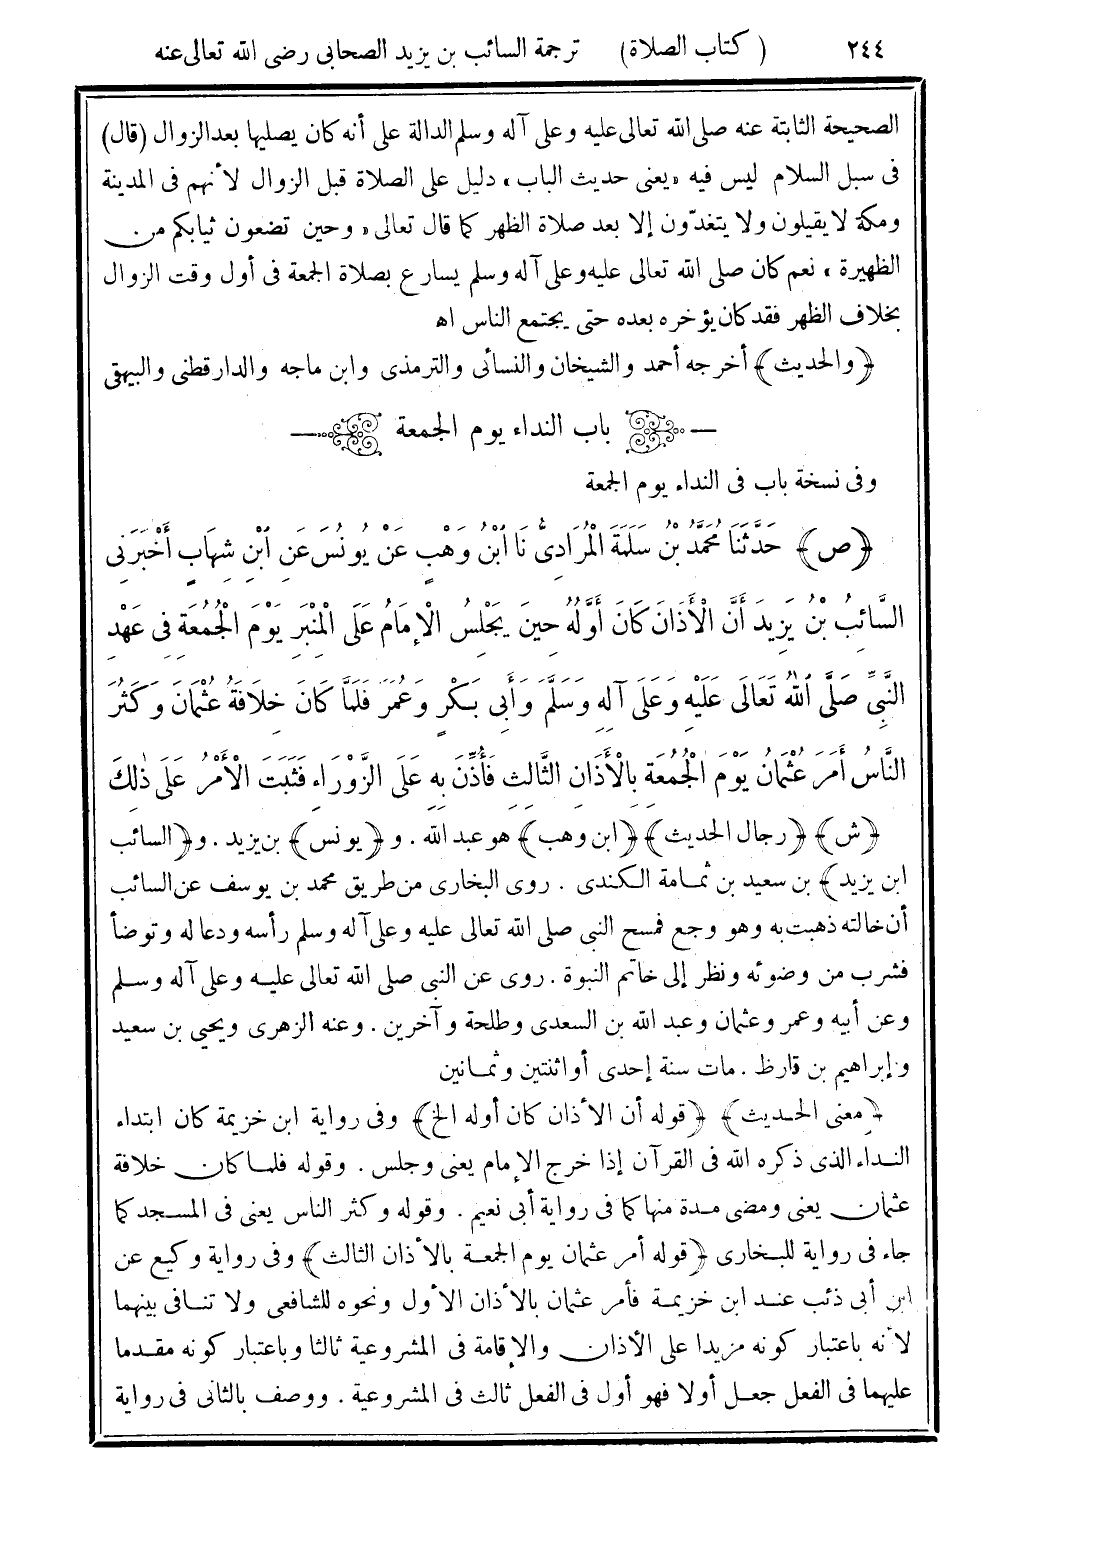 ٢٤٤ ( كتاب الصلاة ) ترجمة السائب بن يزيد الصحابى رضى الله تعالى عنه
الصحيحة الثابتة عنه صلى الله تعالى عليه وعلى آله وسلم الدالة على أنه كان يصليها بعد الزوال (قال)
فى سبل السلام ليس فيه «يعنى حديث الباب» دليل على الصلاة قبل الزوال لأنهم فى المدينة
ومكة لا يقيلون ولا يتغدّون إلا بعد صلاة الظهر كما قال تعالى «وحين تضعون ثيابكم من
الظهيرة» نعم كان صلى الله تعالى عليه وعلى آله وسلم يسارع بصلاة الجمعة فى أول وقت الزوال
بخلاف الظهر فقد كان يؤخره بعده حتى يجتمع الناس اه
﴿والحديث﴾ أخرجه أحمد والشيخان والنسائى والترمذى وابن ماجه والدارقطنى والبيهقى
باب النداء يوم الجمعة
وفى نسخة باب فى النداء يوم الجمعة
﴿ص﴾ حَدَّثَنَا مُحَمَّدُ بْنُ سَلَمَةَ الْمُرَادِىُّ نَا ابْنُ وَهْبٍ عَنْ يُونُسَ عَنِ ابْنِ شِهَابٍ أَخْبَرَنِى
السَّائِبُ بْنُ يَزِيدَ أَنَّ الْأَذَانَ كَانَ أَوَّلُهُ حِينَ يَجْلِسُ الْإِمَامُ عَلَى الْمِنْبَرِ يَوْمَ الْجُمُعَةِ فِى عَهْدِ
النَّبِىِّ صَلَّى اللهُ تَعَالَى عَلَيْهِ وَعَلَى آلِهِ وَسَلَّمَ وَأَبِى بَكْرٍ وَعُمَرَ فَلَمَّا كَانَ خِلَافَةُ عُثْمَانَ وَكَثُرَ
النَّاسُ أَمَرَ عُثْمَانُ يَوْمَ الْجُمُعَةِ بِالْأَذَانِ الثَّالِثِ فَأُذِّنَ بِهِ عَلَى الزَّوْرَاءِ فَثَبَتَ الْأَمْرُ عَلَى ذٰلِكَ
﴿ش﴾ ﴿رجال الحديث﴾ ﴿ابن وهب﴾ هو عبد الله . و﴿يونس﴾ بن يزيد . و﴿السائب
ابن يزيد﴾ بن سعيد بن ثمامة الكندى . روى البخارى من طريق محمد بن يوسف عن السائب
أن خالته ذهبت به وهو وجع فمسح النبى صلى الله تعالى عليه وعلى آله وسلم رأسه ودعا له وتوضأ
فشرب من وضوئه ونظر إلى خاتم النبوة . روى عن النبى صلى الله تعالى عليه وعلى آله وسلم
وعن أبيه وعمر وعثمان وعبد الله بن السعدى وطلحة وآخرين . وعنه الزهرى ويحيى بن سعيد
وإبراهيم بن قارظ . مات سنة إحدى أو اثنتين وثمانين
﴿معنى الحديث﴾ ﴿قوله أن الأذان كان أوله الخ﴾ وفى رواية ابن خزيمة كان ابتداء
النداء الذى ذكره الله فى القرآن إذا خرج الإمام يعنى وجلس . وقوله فلما كان خلافة
عثمان يعنى ومضى مدة منها كما فى رواية أبى نعيم . وقوله وكثر الناس يعنى فى المسجد كما
جاء فى رواية للبخارى ﴿قوله أمر عثمان يوم الجمعة بالأذان الثالث﴾ وفى رواية وكيع عن
ابن أبى ذئب عند ابن خزيمة فأمر عثمان بالأذان الأول ونحوه للشافعى ولا تنافى بينهما
لأنه باعتبار كونه مزيدا على الأذان والإقامة فى المشروعية ثالثا وباعتبار كونه مقدما
عليهما فى الفعل جعل أولا فهو أول فى الفعل ثالث فى المشروعية . ووصف بالثانى فى رواية